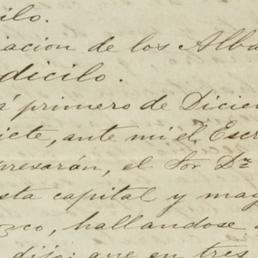 ilo.
iacion de los Alba
dicilo.
primero de Dicie
iete, ante mi el Escr
presarán, el Sor Dn
sta capital y mag
zco, hallandose
dijo: que en tres